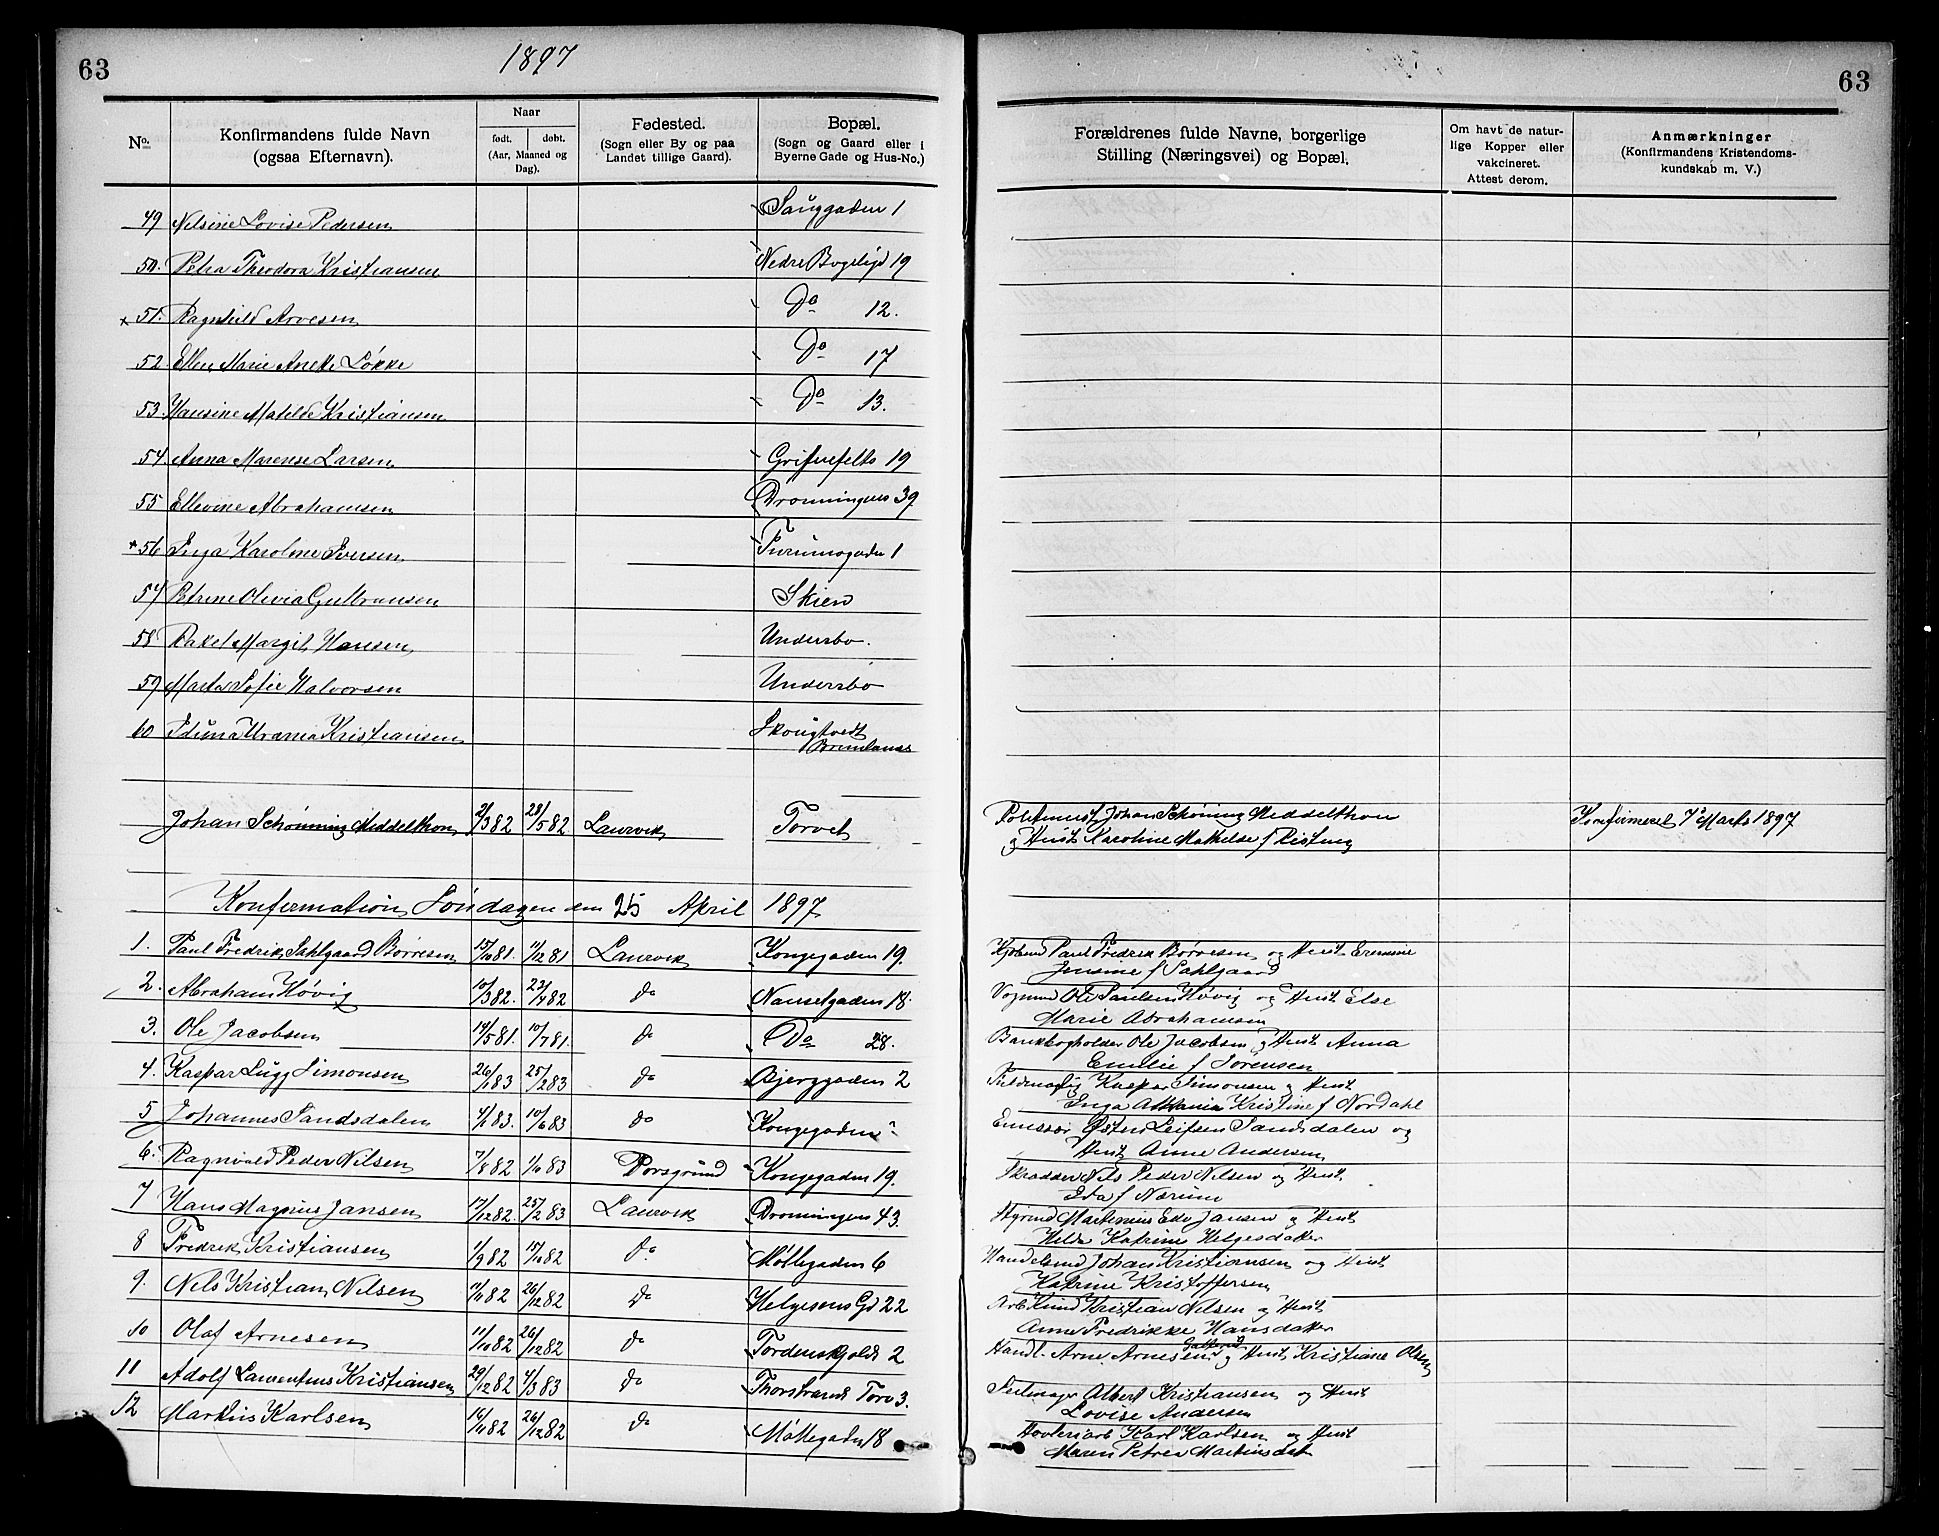 63
1897
63
No.
Konfirmandens fulde Navn
(ogsaa Efternavn).
Naar
født. døbt.
(Aar, Maaned og Dag).
Fødested.
(Sogn eller By og paa
Landet tillige Gaard).
Bopæl.
(Sogn og Gaard eller i
Byerne Gade og Hus-No.)
Forældrenes fulde Navne, borgerlige
Stilling (Næringsvei) og Bopæl.
Om havt de natur-
lige Kopper eller
vakcineret.
Attest derom.
Anmærkninger
(Konfirmandens Kristendoms-
kundskab m. V.)
49 Nilsine Lovise Pedersen 1
50. Petra Theodora Kristiansen Nedre 19
x 51. Ragnhild Arvesen Do 12.
52 Ellen Marie Anette Løkke Do 17
53 Hansine Matilde Kristiansen Do 13.
54. Anna Marense Larsen Grifenfelts 19
55 Ellevine Abrahamsen Dronningens 39
x 56 Inga Karoline Iversen 1
57 Petrine Olivia Gulbransen Skien
58 Rakel Margit Hansen Undersbo.
59 Marta Sofie Halvorsen Undersbo
60 Kristiansen
Brunlanes
Johan Schønning Middelthon 2/3 82 28/5 82 Laurvik Torvet Johan Schøning Middelthon Konfirmeret 7 Marts 1897
og Hust Karoline Mathilde f Risting
Konfirmation Søndagen den 25 April 1897
1. Paul Fredrik Sahlgaard Børresen 15/10 81. 11/12 81 Laurvik Kongegaden 19. Kjøbmd Paul Fredrik Børresen og Hust
Jensine f Sahlgaard
2. Abraham Høvig 10/3 82. 23/4 82 do Nansetgaden 18. Vognmd Ole Paulsen Høvig og Hust Else
Marie Abrahamsen
3. Ole Jacobsen 14/5 81. 10/7 81. do Do 28. Bankbogholder Ole Jacobsen og Hust Anna
Emilie f Sørensen
4. Kaspar Lugg Simonsen 26/1 83 25/2 83 do Bjerggaden 2 Kaspar Simonsen og Hust
Inga Kristine f Nordahl
5 Johannes Sandsdalen 4/1 83. 10/6 83 do Kongegaden Leifsen Sandsdalen og
Hust Anne Andersen
6. Ragnvald Peder Nilsen 7/8 82 83 Porsgrund Kongegaden 19. Skrædder Nils Peder Nilsen og Hust
7 Hans Magnus Jansen 17/12 82. 25/2 83 Laurvik Dronningens 43. Styrmd Martinius Edv Jansen og Hust
Helda Katrine Helgesdatter
8 Fredrik Kristiansen 1/9 82 15/10 82 do Møllegaden 6 Handelsmd Johan Kristiansen og Hust
Katrine Kristoffersen
9. Nels Kristian Nilsen 11/11 82 26/12 82 do Helgesens Gd 22 Arb Kristian Nilsen og Hust
Anne Fredrikke Hansdatter
10 Olaf Arnesen 11/10 82 26/12 82 do Tordenskjolds 2 Handl. Arne Arnesen og Hust Kristiane Olsen
11 Adolf Laurentius Kristiansen 29/12 82 4/3 83 do Thorstrands Torv 3. Albert Kristiansen og Hust
Lovise Andersen
12 Markus Karlsen 16/11 82 26/12 82 do Møllegaden 18 Høvleriarb Karl Karlsen og Hust
Maren Petrea Martinsdat